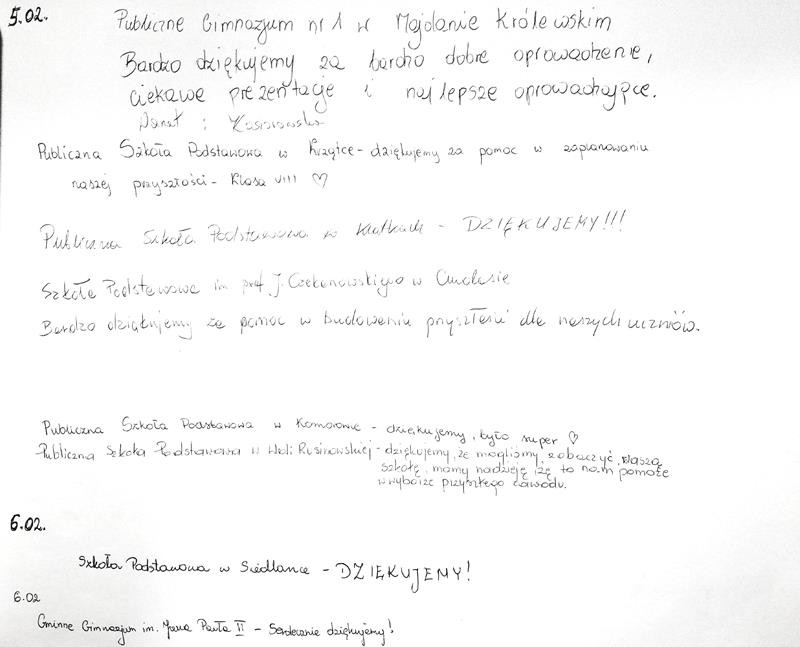 5.02.
Publiczne Gimnazjum nr 1 w Majdanie Królewskim
Bardzo dziękujemy za bardzo dobre oprowadzenie,
ciekawe prezentacje i najlepsze oprowadzające.
Publiczna Szkoła Podstawowa w Krzątce - dziękujemy za pomoc w zaplanowaniu
naszej przyszłości - klasa VIII ♡
Publiczna Szkoła Podstawowa w - DZIĘKUJEMY!!!
Szkoła Podstawowa im prof. J. Czekanowskiego w Cmolasie
Bardzo dziękujemy za pomoc w budowaniu przyszłości dla naszych uczniów.
Publiczna Szkoła Podstawowa w Komorowie - dziękujemy, było super ♡
Publiczna Szkoła Podstawowa w Woli Rusinowskiej - dziękujemy, że mogliśmy zobaczyć waszą
szkołę, mamy nadzieję iżę to nam pomoże
w wyborze przyszłego zawodu.
6.02.
Szkoła Podstawowa w Siedlance - DZIĘKUJEMY!
6.02
Gminne Gimnazjum im. Jana Pawła II - Serdecznie dziękujemy!